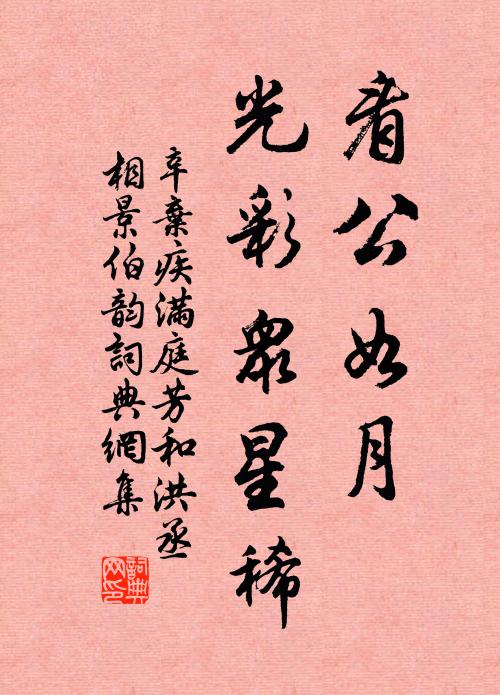 看公如月
光彩眾星稀
辛棄疾滿庭芳和洪丞
相景伯韵詞典網集
詞典
网印